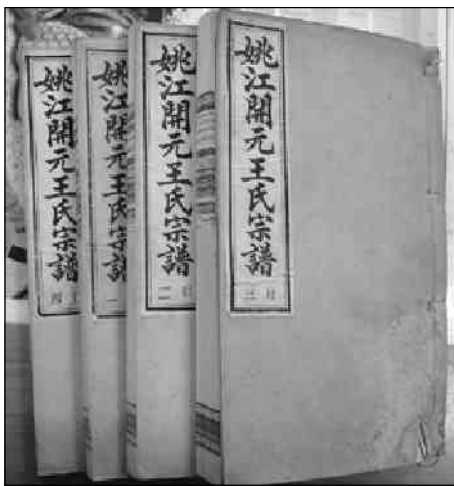 姚江開元王氏宗譜
四
姚江開元王氏宗譜
一
姚江開元王氏宗譜
二
姚江開元王氏宗譜
三